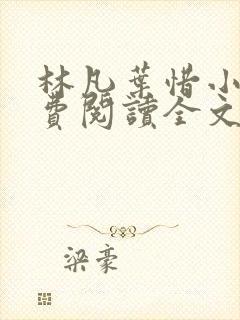 林凡葉惜小
費閱讀全文
梁豪